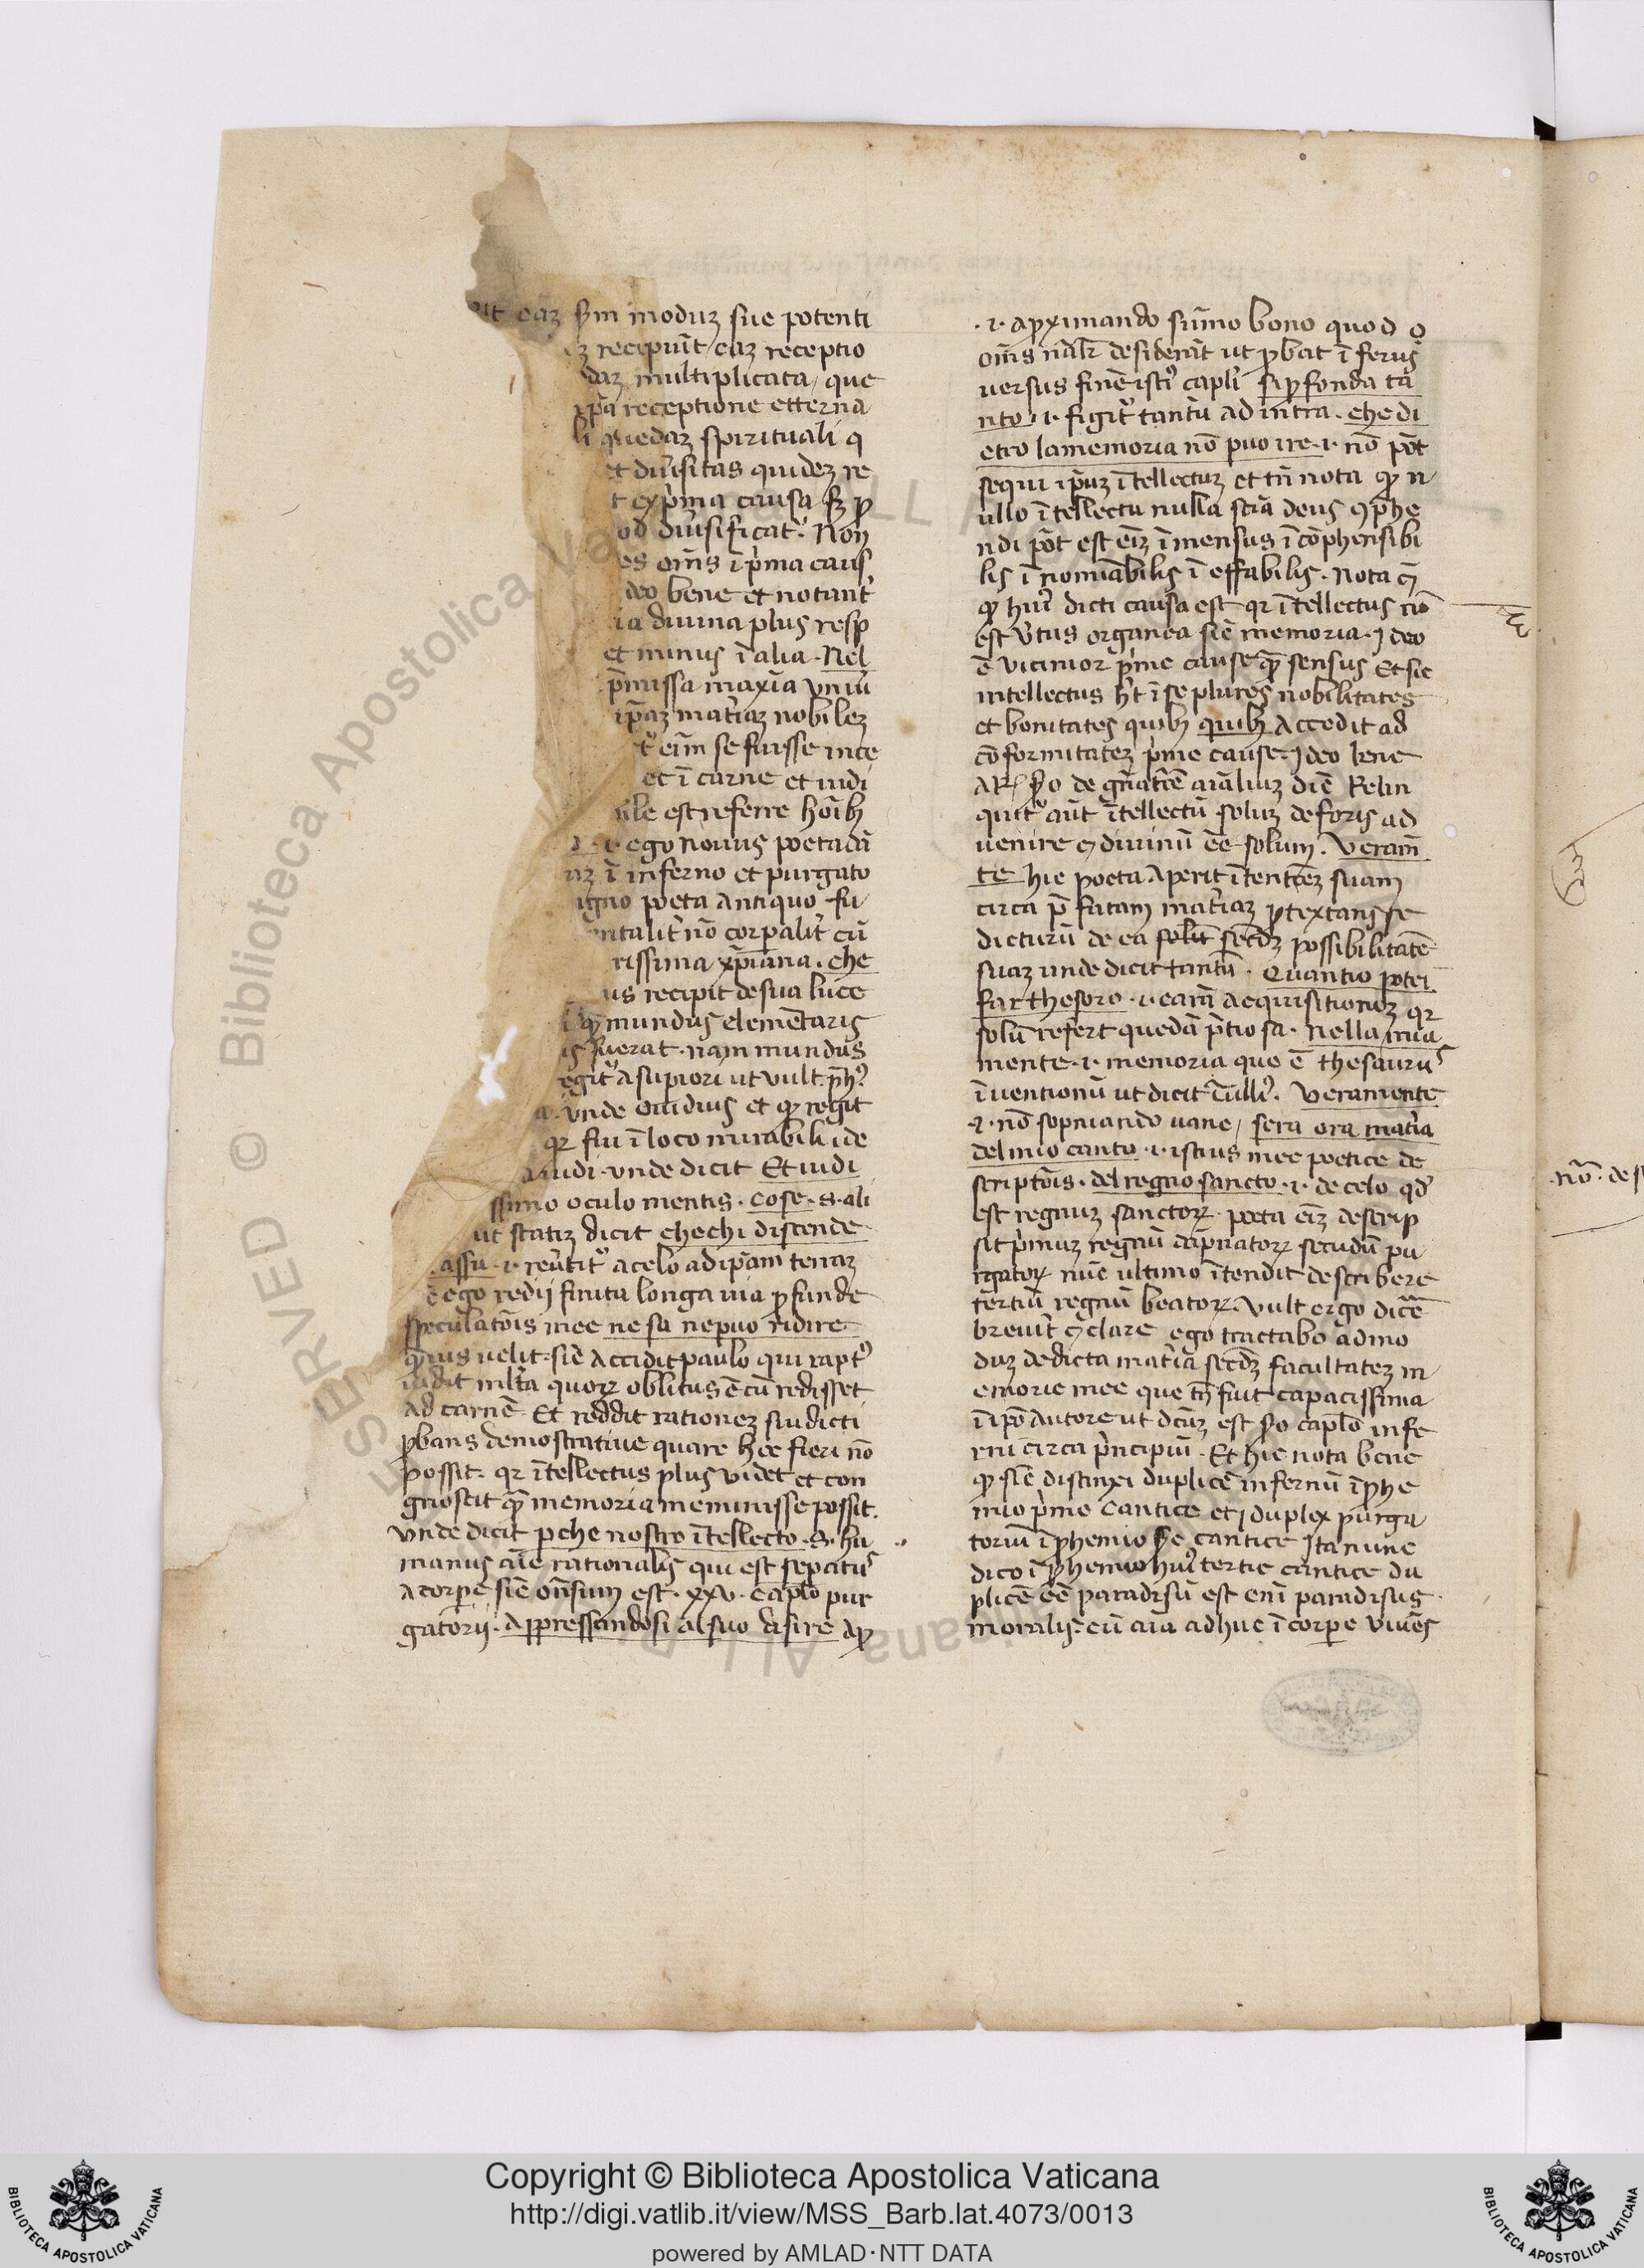 eaz sm moduz sue potenti
recipiut eaz receptio
daz multiplicata / que
receptione etterna
li quedaz spirituali q
et diuisitas quidez re
t ex pma causa sz p
od diuisificat. Non
es ois i pma caus
deo bene et notant
ia diuina plus resp
et minus i alia. Nel
pmissa maxia uniu
ipaz matiaz nobilez
eum se fuisse in ce
et i carne et uidi
ile est referre hoib
.i. ego nouus poeta da
i inferno et purgato
igno poeta antiquo fu
ntalit no corpalit cu
rissima xpiana. che
us recipit de sua luce
mundus elementaris
fuerat. nam mundus
egit a supiori ut uult ph
unde ouidius et q regit
qr fui i loco mirabili ide
a uidi. unde dicit Et uidi
ssimo oculo mentis. cose. s. ali
ut statiz dicit che chi discende
assu .i. reutit a celo ad ipam terraz
ego redij finita longa uia pfunde
speculatois mee ne sa ne puo ridire
quis uelit. sic accidit paulo qui rapt
uidit mlta quorz oblitus e cu redisset
ad carne. Et reddit rationez sui dicti
pbans demostratiue quare hec fieri no
possit. qr itellectus plus uidet et con
gnoscit q memoria meminisse possit.
unde dicit pche nostro itellecto. s. hu
manus aie rationalis qui est sepatus
a corpe sic onsum est. xxv. caplo pur
gatorij. Appressandosi al suo disire ap
.i. apximando sumo bono quod
ois nalr desiderat ut pbat i ferus
uersus fine isti capli si pfonda ta
nto .i. figit tantu ad intra. che di
etro la memoria no puo ire .i. no pot
sequi ipuz itellectuz et tn nota q n
ullo itellectu nulla scia deus 9phe
ndi pot est eiz imensus i comphensibi
lis i nominabilis i effabilis. Nota
q hui dicti causa est qr itellectus no
est utus organea sic memoria. Ideo
e uicinior pme cause q sensus Et sic
intellectus ht i se plures nobilitates
et bonitates quib quib accedit ad
coformitatez pme cause. Ideo bene
de gnatoe aialiuz dic Relin
quit aut itellectu soluz de foris ad
uenire diuinu ee solum. Veram
te hic poeta aperit itentoez suam
circa p fatam matiaz ptextans se
dicturu de ea solu possibilitate
suaz unde dicit tantu. Quantio potei
far thesoro .i. cara acquisitionez qr
solu refert queda ptiosa. Nella mia
mente .i. memoria que e thesaurus
iuentionu ut dicit Tulli. Veramente
.i. no sopniando uane, sera ora matia
del mio canto .i. istius mee poetice de
scriptois. del regno sancto .i. de celo qd
est regnuz sanctorz. poeta eiz descrip
sit pmuz regnu dapnatorz secudu pu
rgatorz nuc ultimo itendit describere
tertiu regnu beatorz. Vult ergo dice
breuit clare ego tractabo admo
duz de dicta matia secdz facultatez m
emorie mee que tn fuit capacissima
i ipo autore ut dcuz est caplo infe
rni circa pncipiu. Et hic nota bene
q sic distinxi duplice infernu i phe
mio pme Cantice et duplex purga
toriu i phemio cantice Ita nunc
dico i phemio hui tertie cantice du
plice ee paradisu est eni paradisus
moralis. cu aia adhuc i corpe uiues
no. de s
Copyright © Biblioteca Apostolica Vaticana
http://digi.vatlib.it/view/MSS_Barb.lat.4073/0013
powered by AMLAD·NTT DATA
BIBLIOTECA APOSTOLICA VATICANA
BIBLIOTECA APOSTOLICA VATICANA